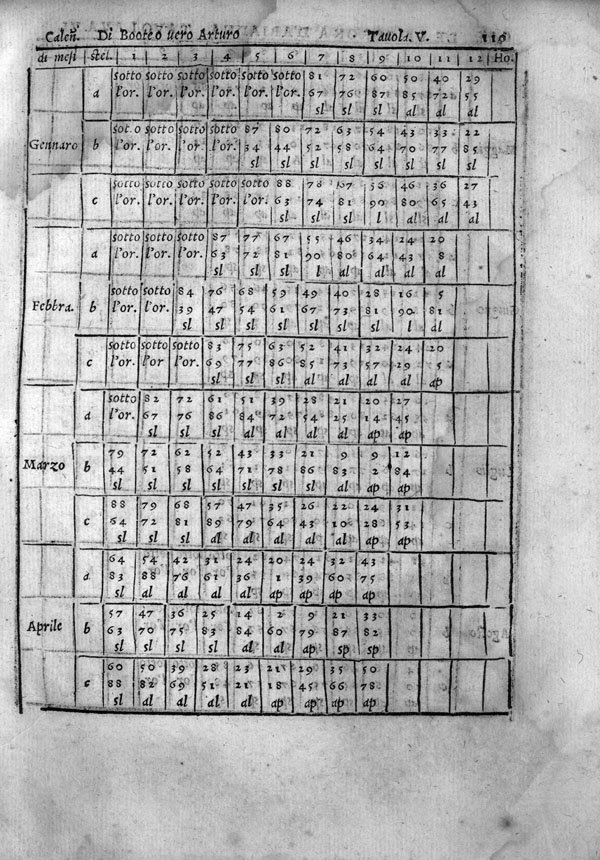 Caleñ. Di Booteo vero Arturo Tavola. V. 116
di mesi stel. 1 2 3 4 5 6 7 8 9 10 11 12 Ho.
sotto sotto sotto sotto sotto sotto 81 72 60 50 40 29
a l'or. l'or. l'or. l'or. l'or. l'or. 67 76 87 85 72 55
sl sl sl al al al
sot.o sotto sotto sotto 87 80 72 63 54 43 33 22
Gennaro b l'or. l'or. l'or. l'or. 34 44 52 58 64 70 77 85
sl sl sl sl sl sl sl sl
sotto sotto sotto sotto sotto 88 78 67 56 46 36 27
c l'or. l'or. l'or. l'or. l'or. 63 74 81 90 80 65 43
sl sl sl l al al al
sotto sotto sotto 87 77 67 55 46 34 24 20
a l'or. l'or. l'or. 63 72 81 90 80 64 43 8
sl sl sl l al al al al
sotto sotto 84 76 68 59 49 40 28 16 5
Febbra. b l'or. l'or. 39 47 54 61 67 73 81 90 81
sl sl sl sl sl sl sl l al
sotto sotto sotto 83 75 63 52 41 32 24 20
c l'or. l'or. l'or. 69 77 86 85 73 57 29 5
sl sl sl al al al al ap
sotto 82 72 61 51 39 28 21 20 27
a l'or. 67 76 86 84 72 54 25 14 45
sl sl sl al al al al ap ap
79 72 62 52 43 33 21 9 9 12
Marzo b 44 51 58 64 71 78 86 83 2 84
sl sl sl sl sl sl sl al ap ap
88 79 68 57 47 35 26 22 24 31
c 64 72 81 89 79 64 43 10 28 53
sl sl sl al al al al al ap ap
64 54 42 31 24 20 24 32 43
a 83 88 76 61 36 1 39 60 75
sl al al al al ap ap ap ap
57 47 36 25 14 2 9 21 33
Aprile b 63 70 75 83 84 60 79 87 82
sl sl sl sl al al ap sp sp
60 50 39 28 23 21 29 35 50
c 88 82 69 51 21 18 45 66 78
sl al al al al ap ap ap ap